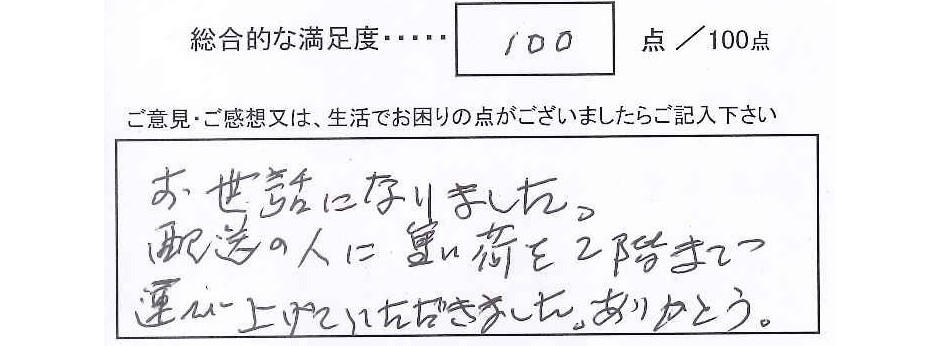 総合的な満足度・・・・・ 100 点 ／100点
ご意見・ご感想又は、生活でお困りの点がございましたらご記入下さい
お世話になりました。
配送の人に重い荷を2階まで
運び上げていただきました。ありがとう。